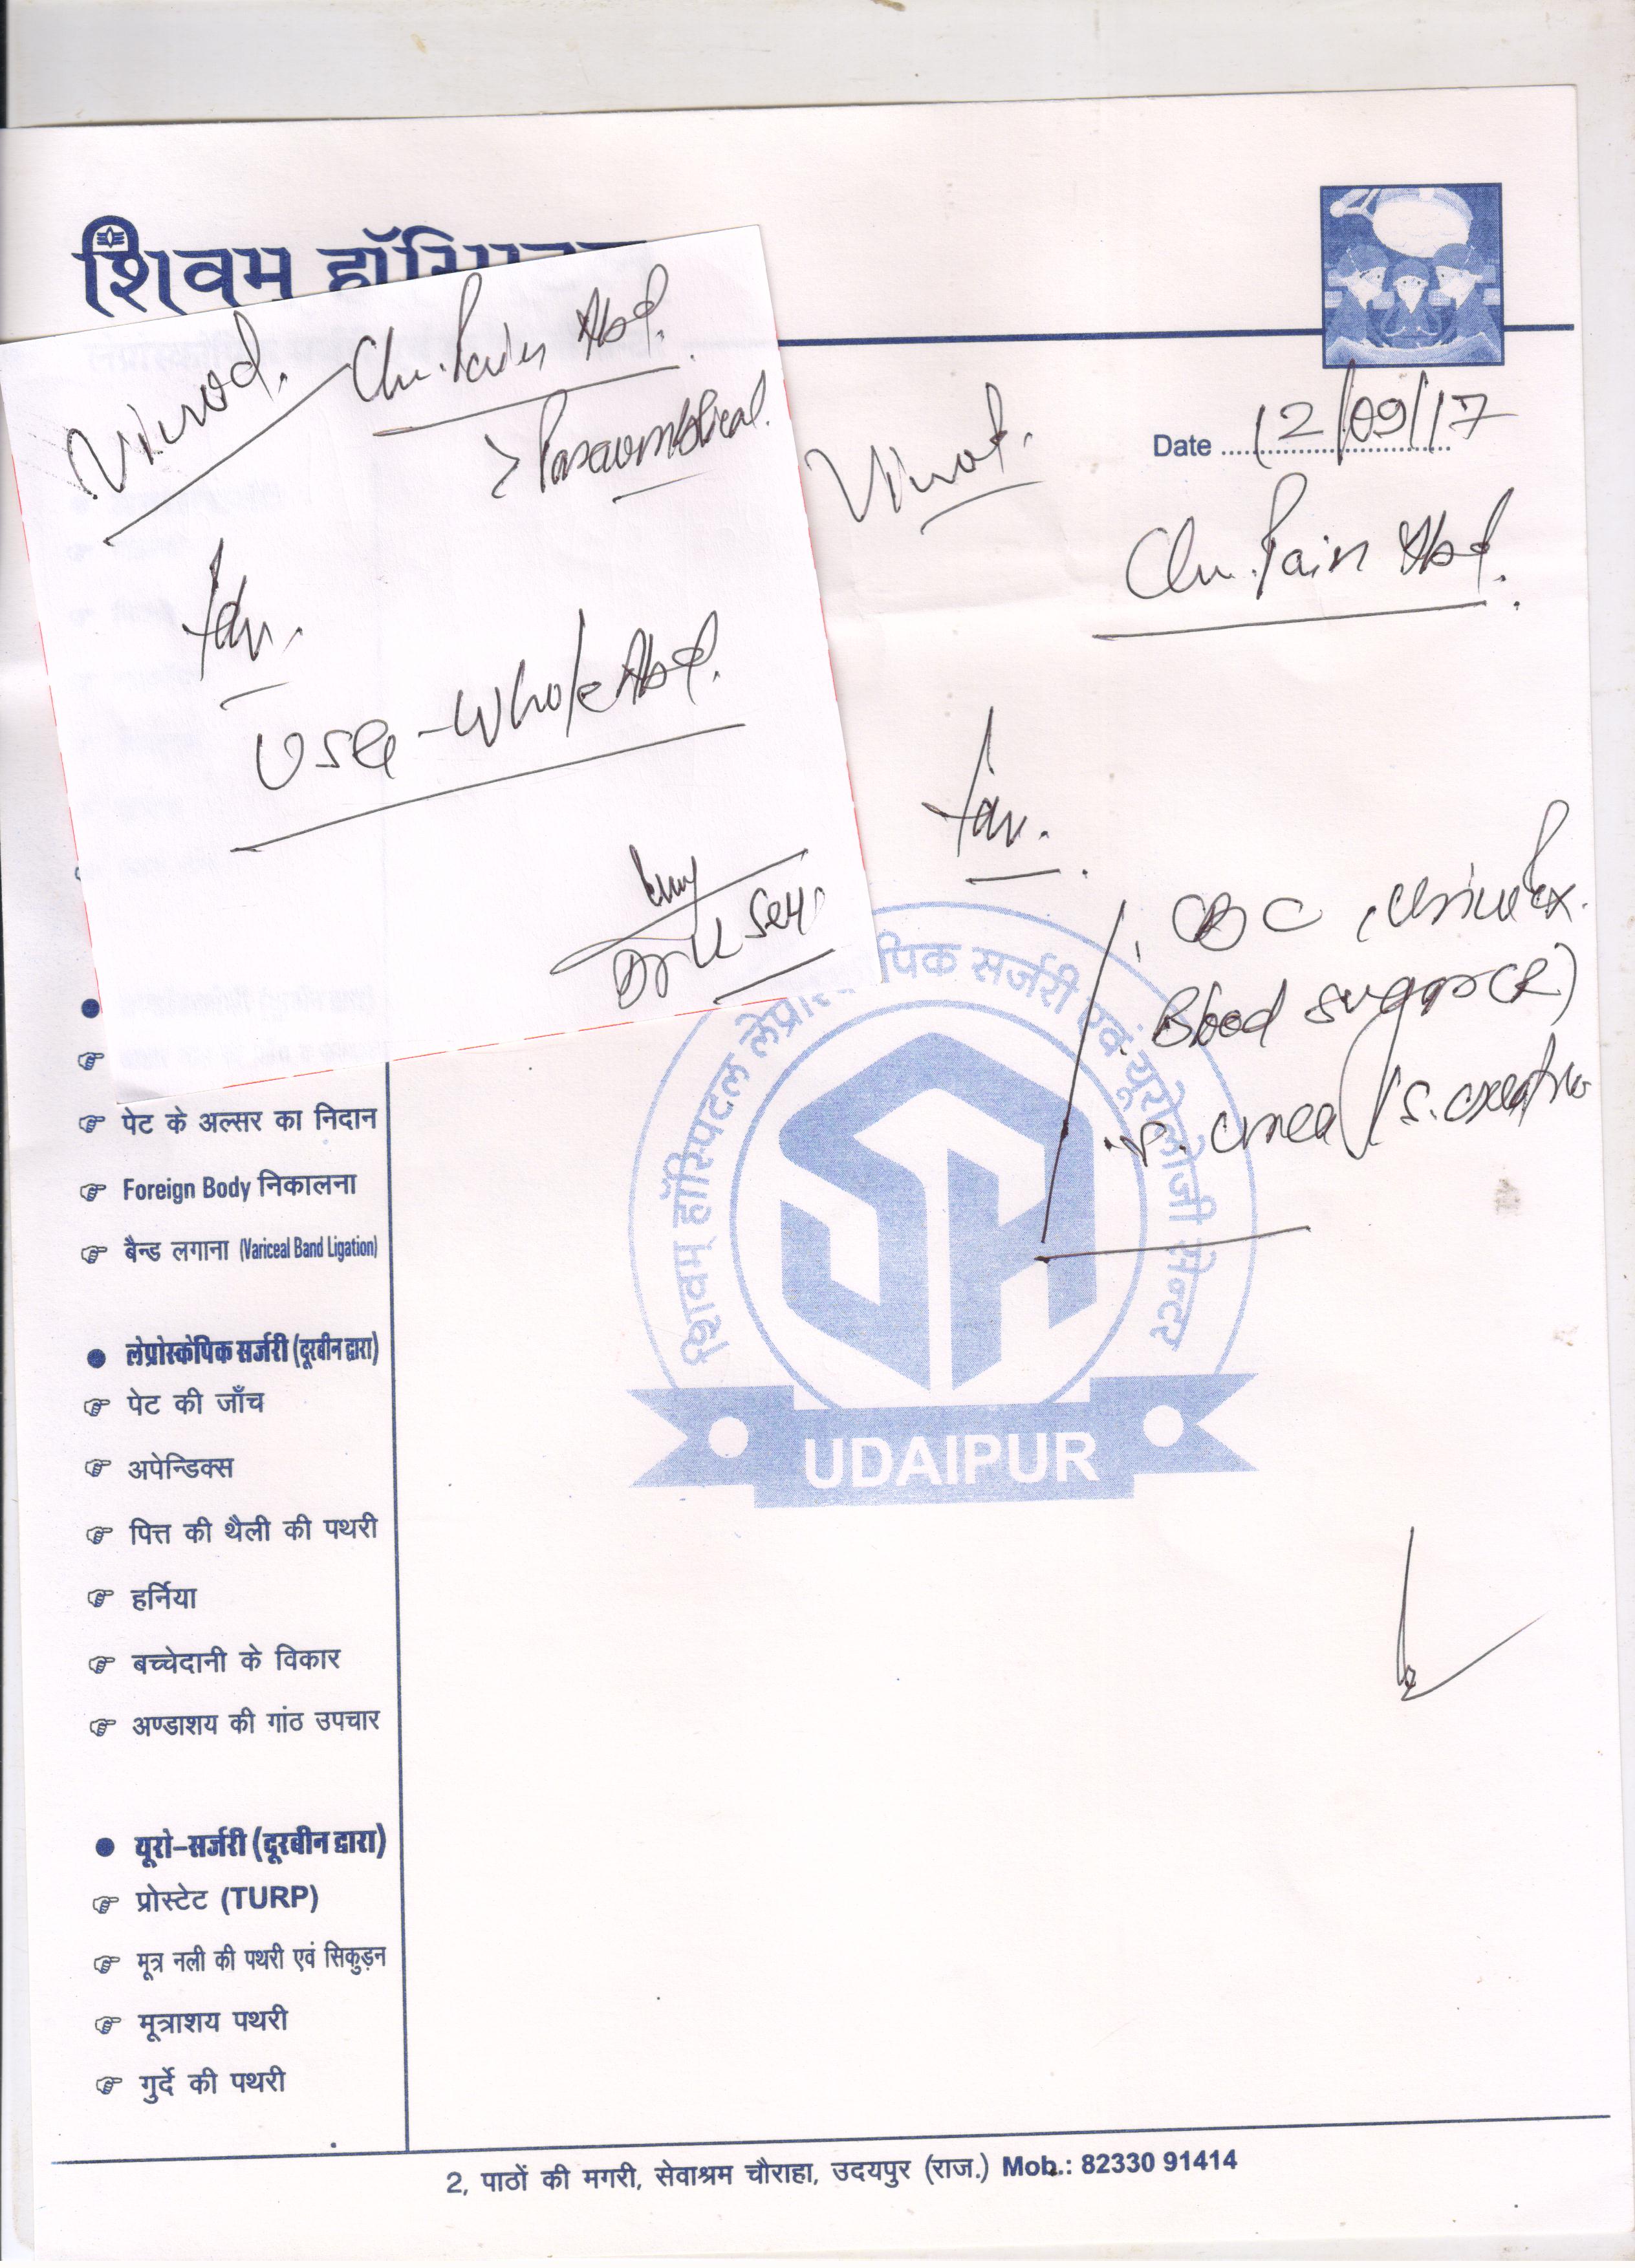 शिवम्
Vinod.
Chr. Pain Abd.
> Paraumbilical.
Adv.
USG - Whole Abd.
Dr
Date 12/09/17
Vinod.
Chr. Pain Abd.
Adv.
CBC, Urine Ex.
Blood Suggar (R)
S. Urea / S. Creatin
पेट के अल्सर का निदान
Foreign Body निकालना
बैन्ड लगाना (Variceal Band Ligation)
लेप्रोस्कोपिक सर्जरी (दूरबीन द्वारा)
पेट की जाँच
अपेन्डिक्स
पित्त की थैली की पथरी
हर्निया
बच्चेदानी के विकार
अण्डाशय की गांठ उपचार
यूरो-सर्जरी (दूरबीन द्वारा)
प्रोस्टेट (TURP)
मूत्र नली की पथरी एवं सिकुड़न
मूत्राशय पथरी
गुर्दे की पथरी
शिवम् हॉस्पिटल लेप्रोस्कोपिक सर्जरी एवं यूरोलोजी सेन्टर
UDAIPUR
2, पाठों की मगरी, सेवाश्रम चौराहा, उदयपुर (राज.) Mob.: 82330 91414